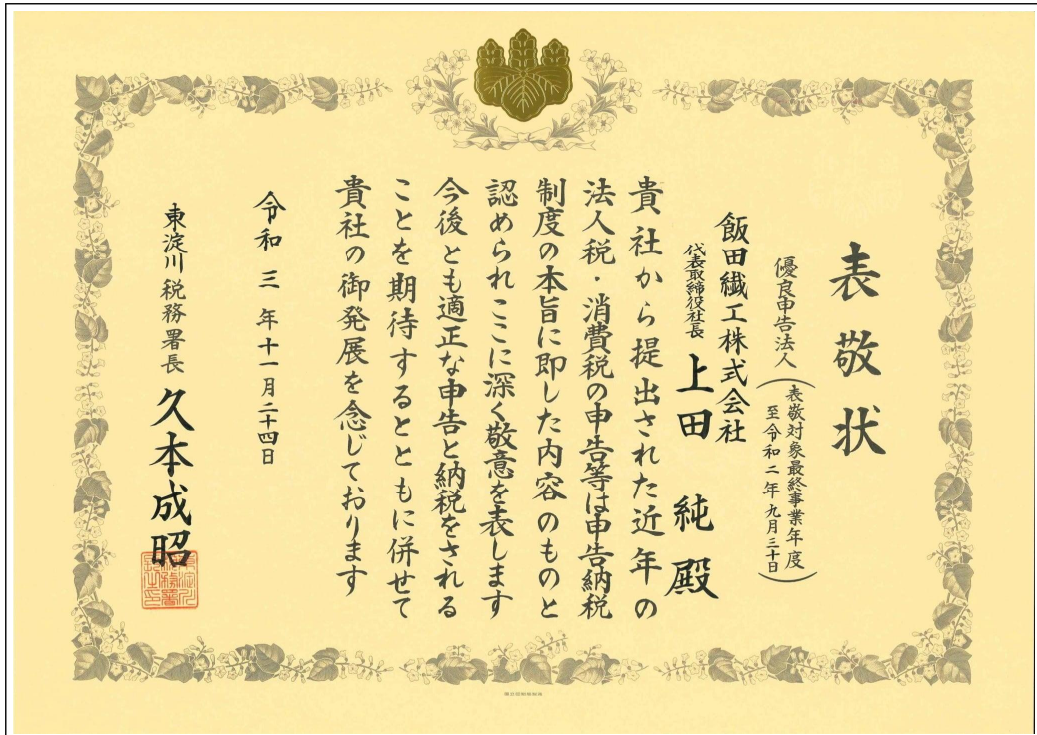 表敬状
優良申告法人
(表敬対象最終事業年度
至令和二年九月三十日)
飯田繊工株式会社
代表取締役社長 上田 純 殿
貴社から提出された近年の
法人税・消費税の申告等は申告納税
制度の本旨に即した内容のものと
認められここに深く敬意を表します
今後とも適正な申告と納税をされる
ことを期待するとともに併せて
貴社の御発展を念じております
令和三年十一月二十四日
東淀川税務署長 久本成昭